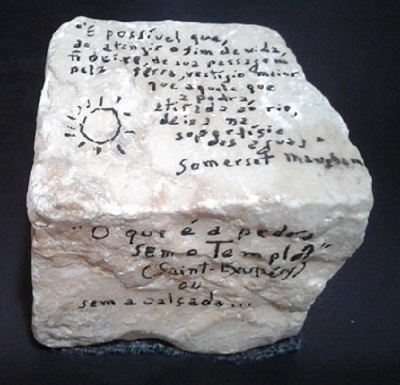 "É possível que,
ao atingir o fim de vida,
deixe de sua passagem
pela terra, vestígio maior
que aquele que
a pedra,
atirada ao rio,
deixa na
superfície
das águas"
Somerset Maugham
"O que é a pedra,
SEM o Templo?"
(Saint-Exupéry)
ou
sem a calçada...